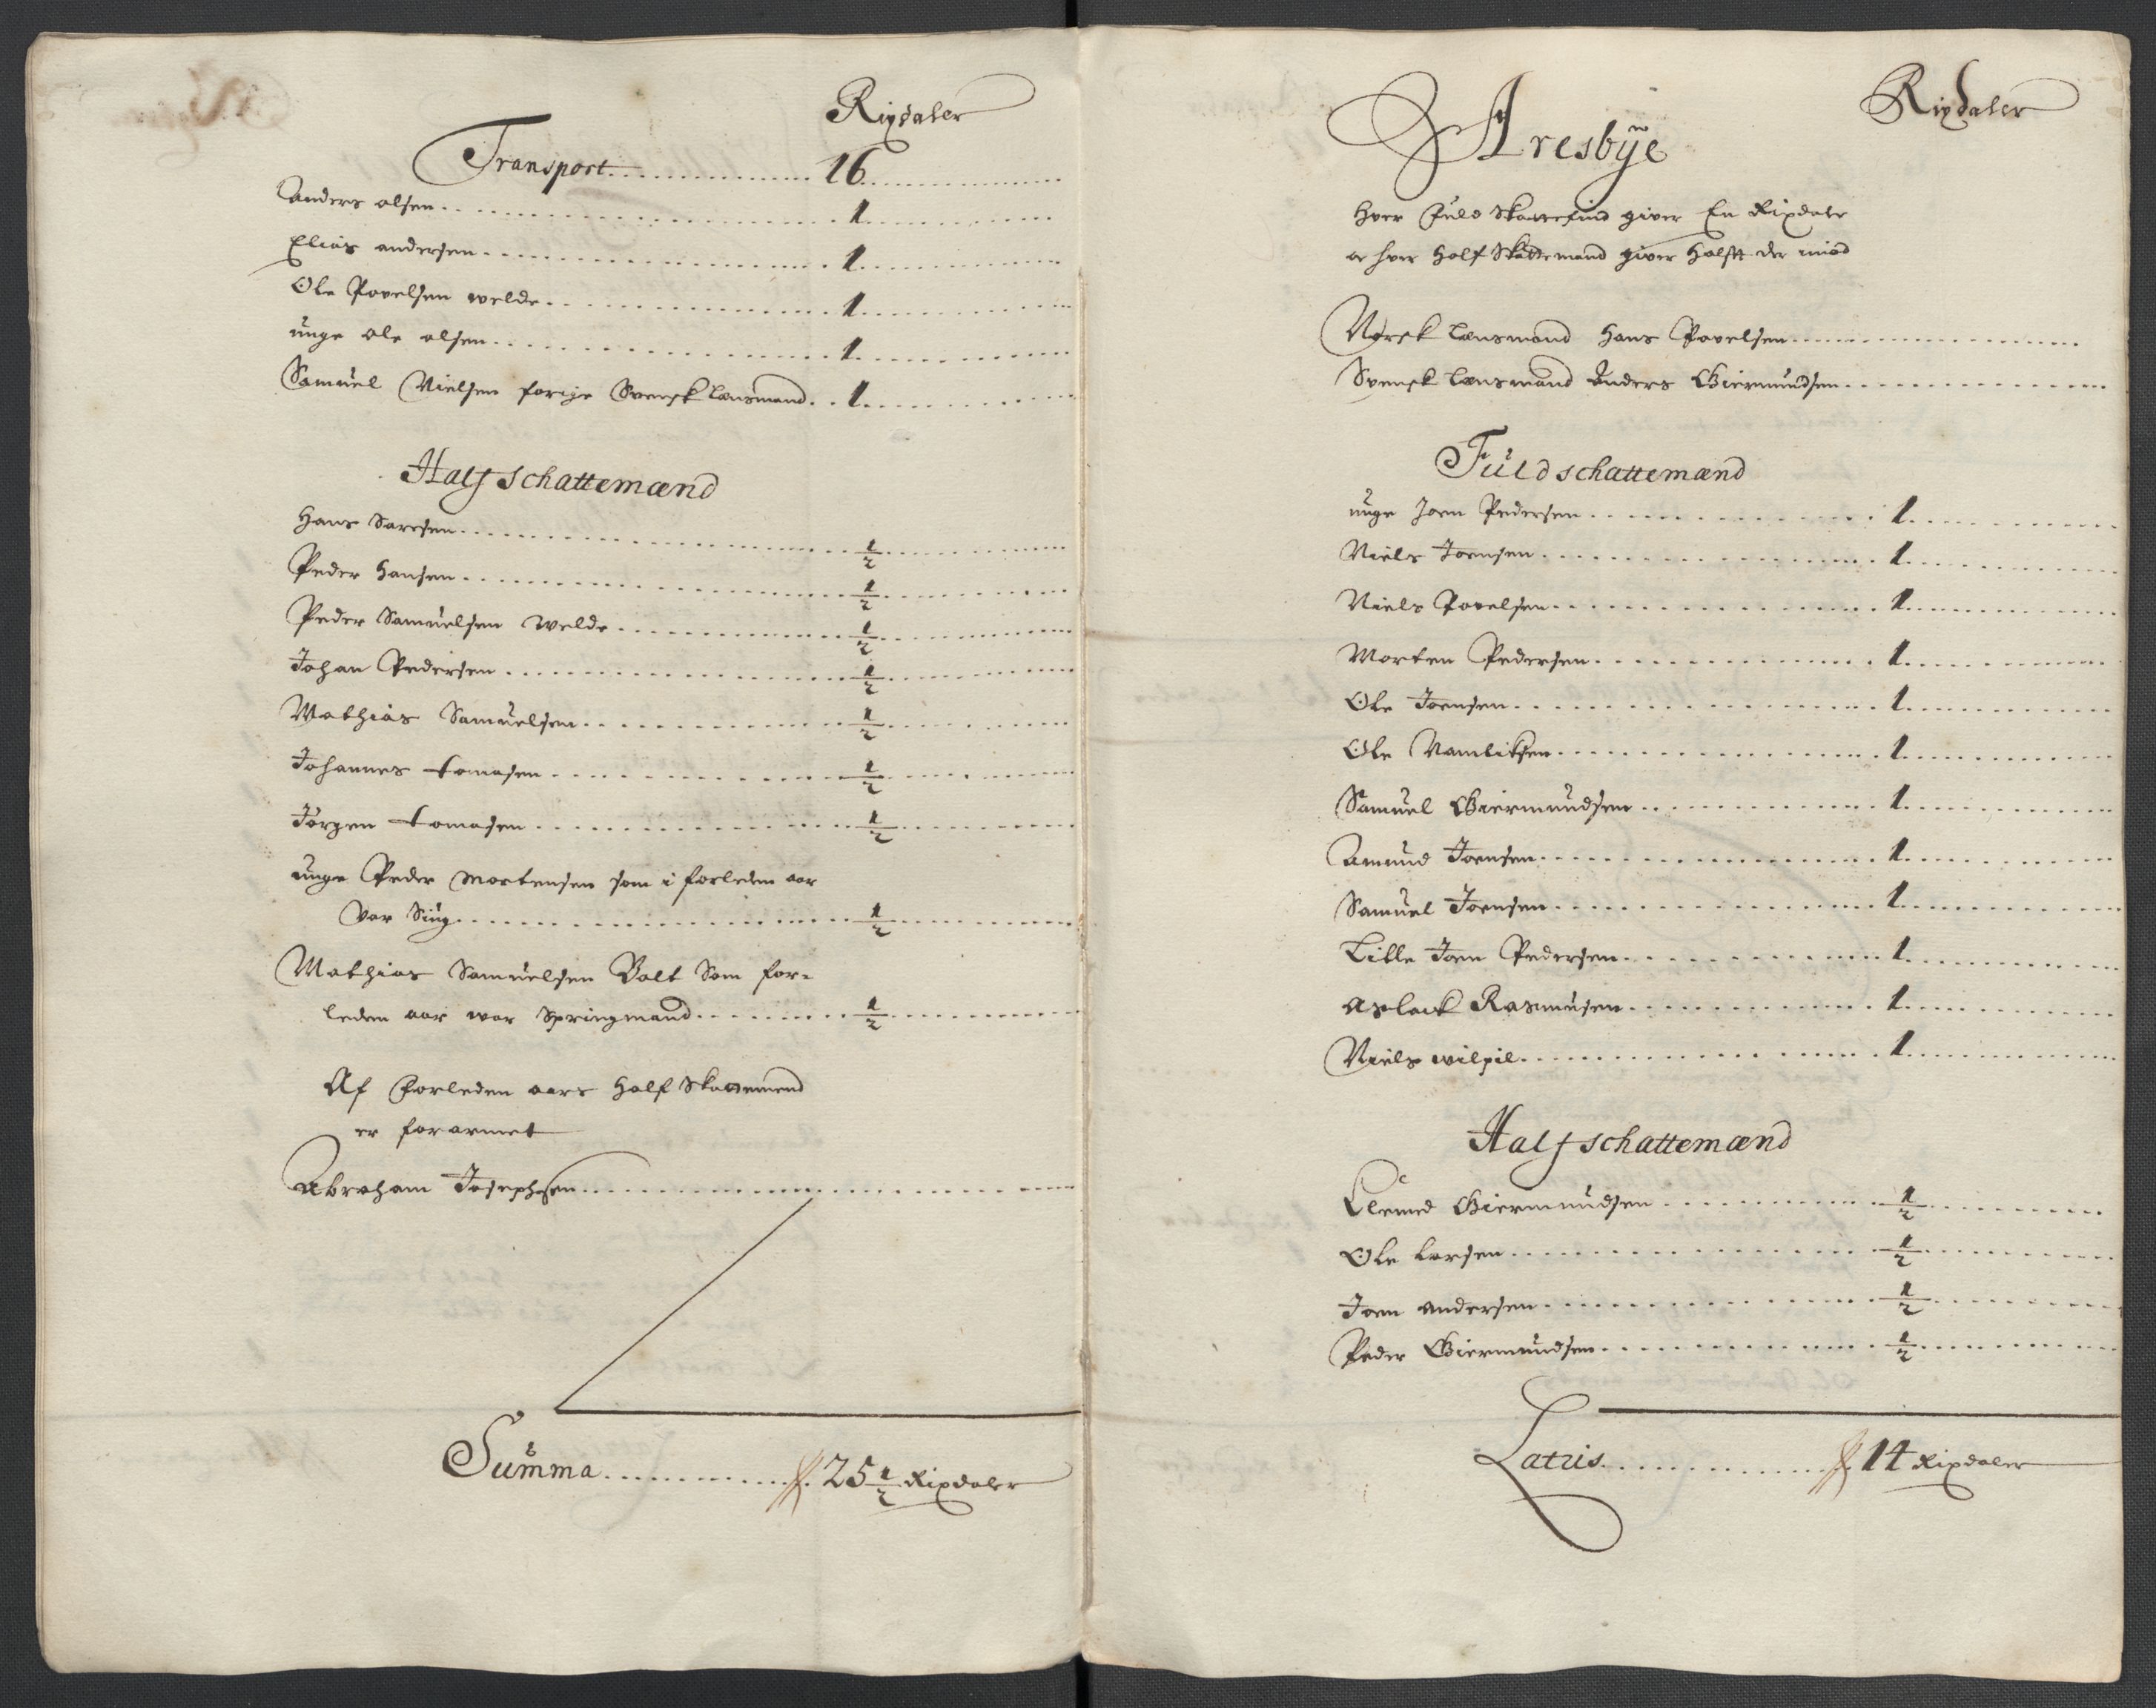 Rixdaler
Transport 16
Anders olsen 1
Elias andersen 1
Ole Povelsen welde 1
unge ole olsen 1
Samuel Nielsen forige Svensk Lensmand 1
Half schattemænd
Hans Saresen 1/2
Peder Hansen 1/2
Peder Samuelsen welde 1/2
Johan Pedersen 1/2
Mathias Samuelsen 1/2
Johannes tomasen 1/2
Jörgen tomasen 1/2
unge Peder Mortensen som i forleden aar
var Siug 1/2
Mathias Samuelsen Balt Som for-
leden aar war Springmand 1/2
Af Forleden aars Half Skattemend
er forarmet
Abraham Josephsen
Summa 25 1/2 Rixdaler
Rixdaler
Aresbÿe
Hver Fuld Skattefind giver En Rixdaler
oc hver Half Skattemand giver Halftt der imod
Norsk Lensmand Hans Povelsen
Svensk Lensmand Anders Giermundsen
Fuld schattemænd
unge Joen Pedersen 1
Niels Joensen 1
Niels Povelsen 1
Morten Pedersen 1
Ole Joensen 1
Ole 1
Samuel Giermundsen 1
Amund Joensen 1
Samuel Joensen 1
Lille Joen Pedersen 1
Aslack Rasmusen 1
Niels wilpil 1
Half schattemænd
Clemed Giermundsen 1/2
Ole Larsen 1/2
Joen andersen 1/2
Peder Giermundsen 1/2
Latris 14 Rixdaler